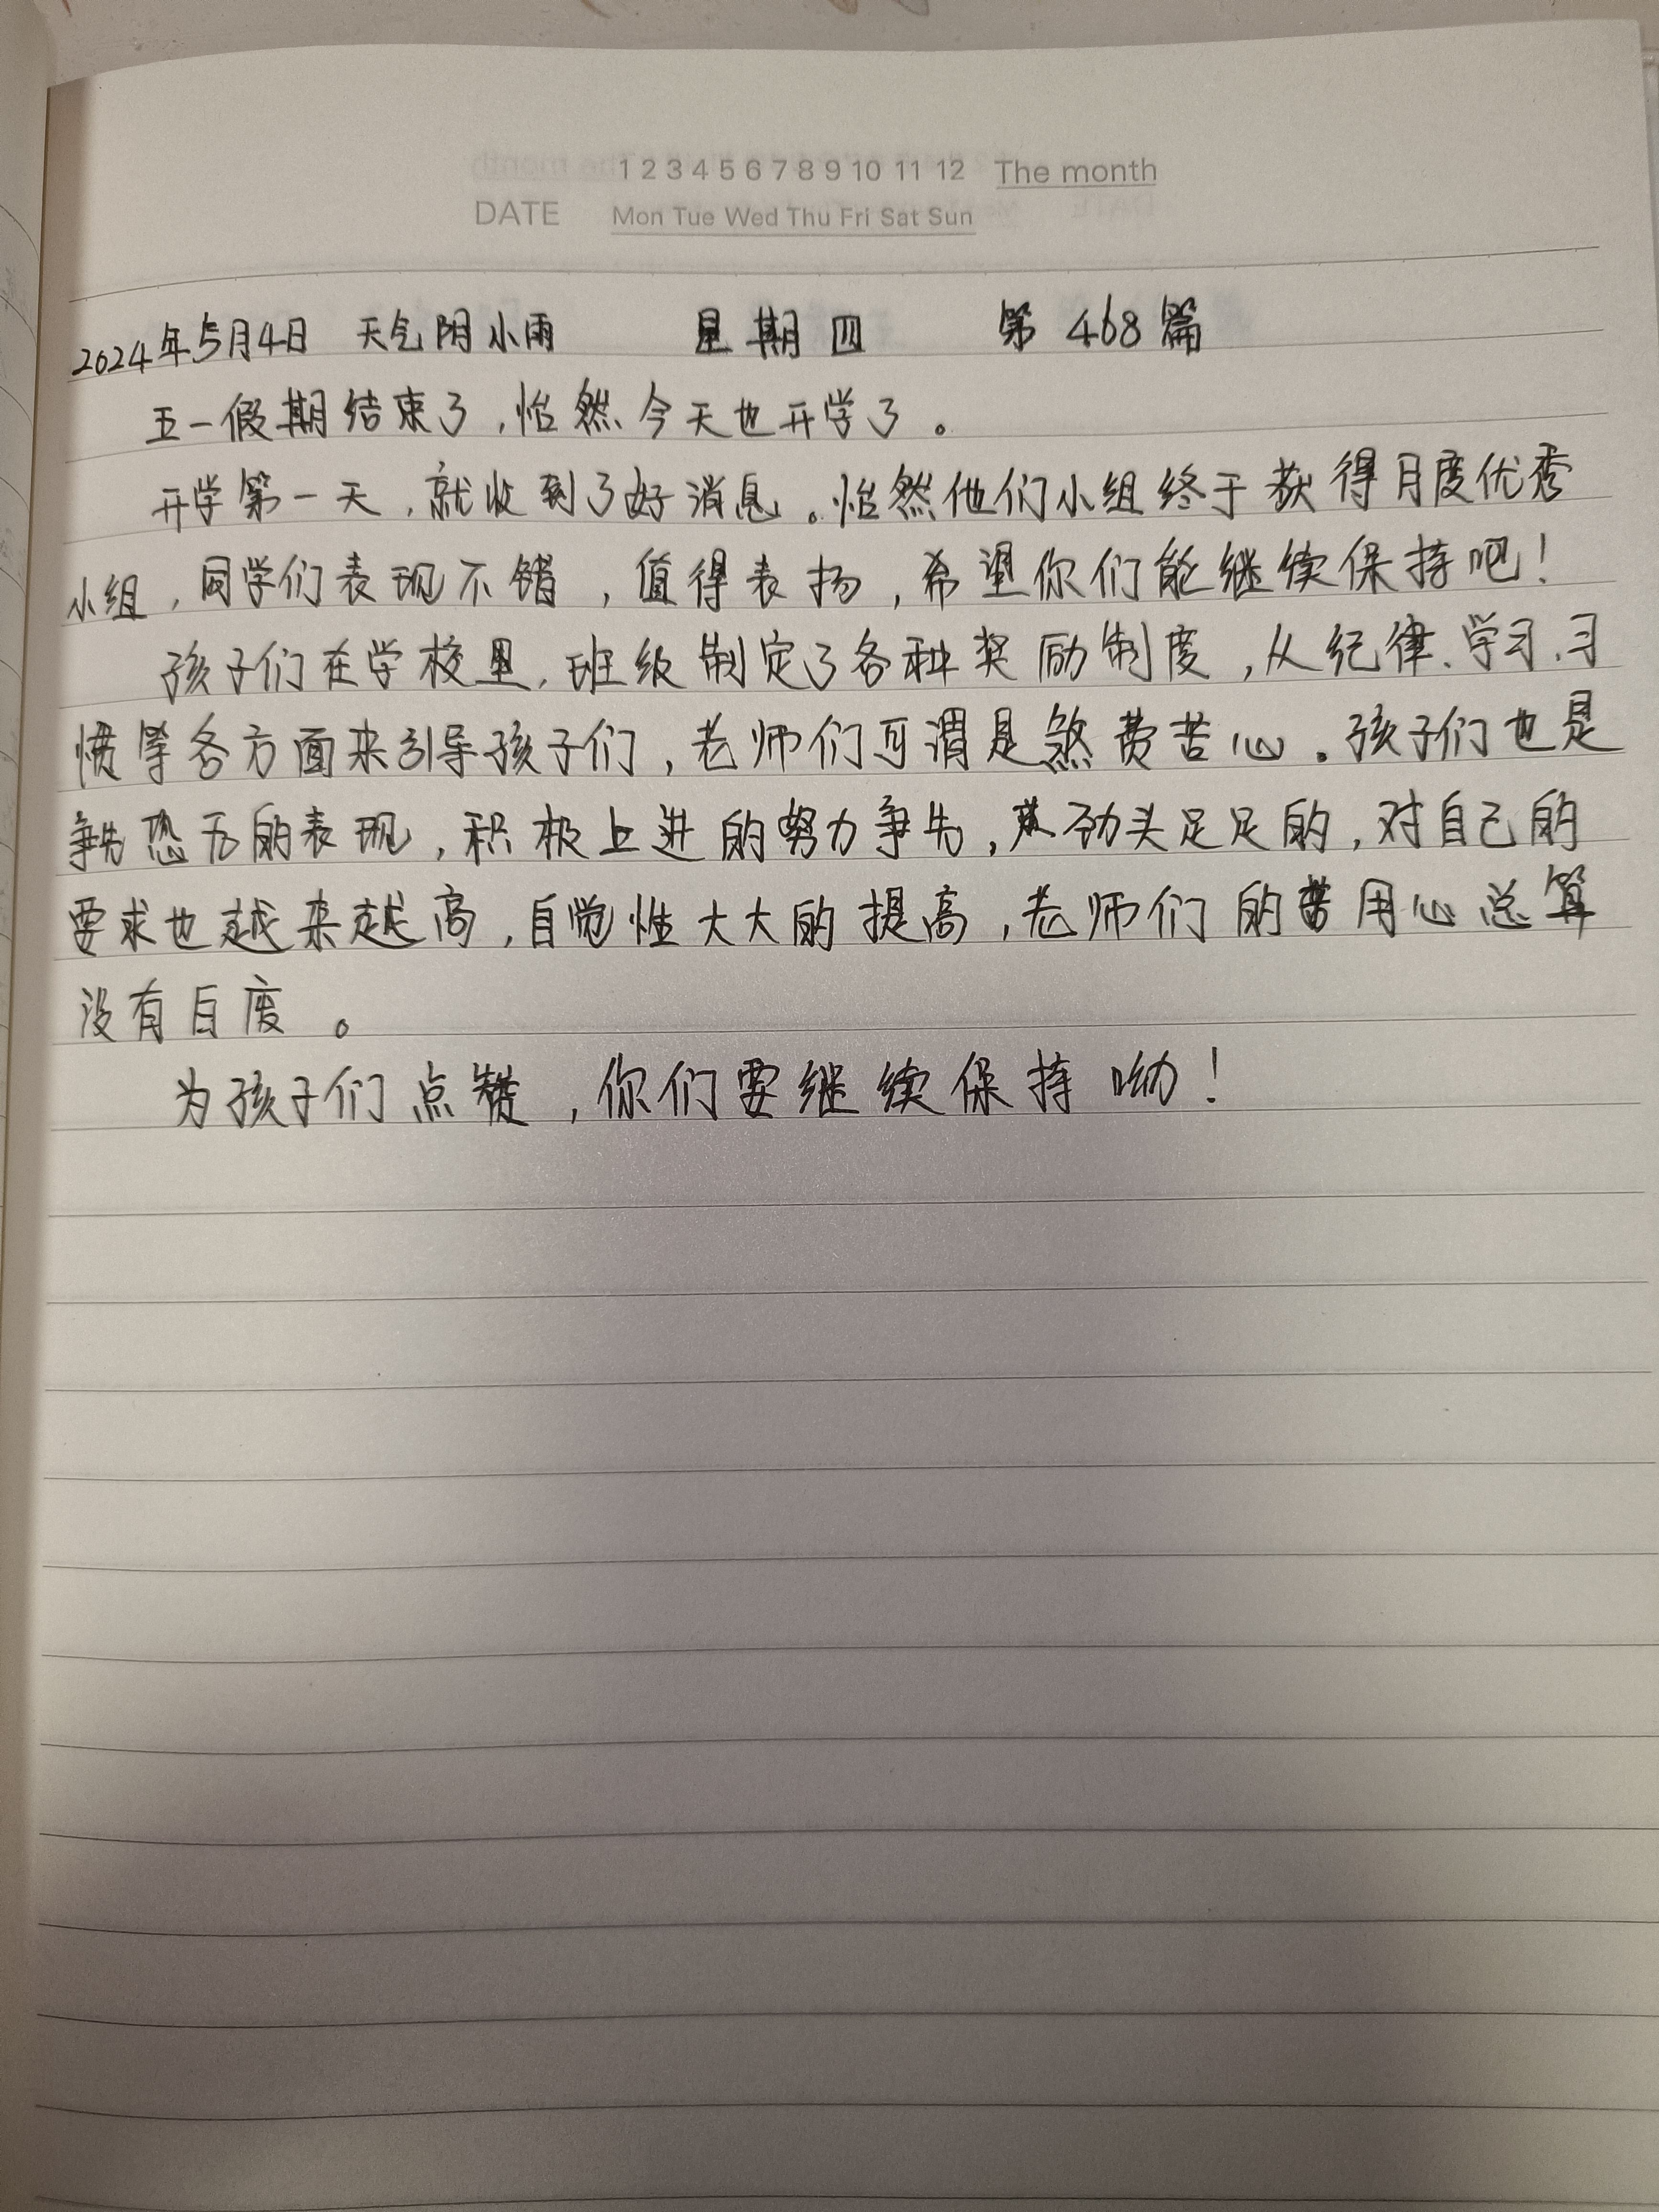 1 2 3 4 5 6 7 8 9 10 11 12 The month
DATE Mon Tue Wed Thu Fri Sat Sun
2024年5月4日 天气阴小雨 星期四 第468篇
五一假期结束了,怡然今天也开学了。
开学第一天,就收到了好消息。怡然他们小组终于获得月度优秀
小组,同学们表现不错,值得表扬,希望你们能继续保持吧!
孩子们在学校里,班级制定了各种奖励制度,从纪律、学习、习
惯等各方面来引导孩子们,老师们可谓是煞费苦心。孩子们也是
争先恐后的表现,积极上进的努力争先,劲头足足的,对自己的
要求也越来越高,自觉性大大的提高,老师们的用心总算
没有白废。
为孩子们点赞,你们要继续保持呦!